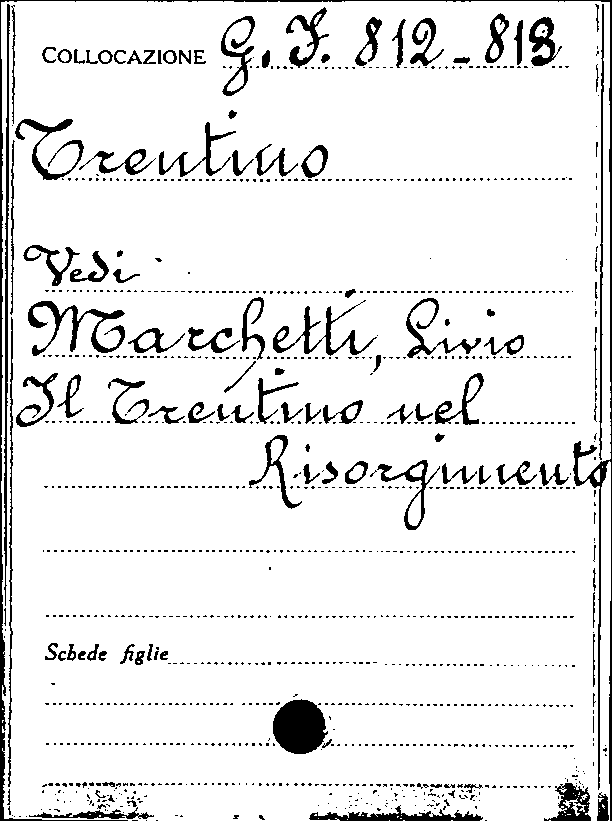 COLLOCAZIONE G. I. 812-813
Trentino
Vedi
Marchetti, Livio
Il Trentino nel
Risorgimento
Schede figlie